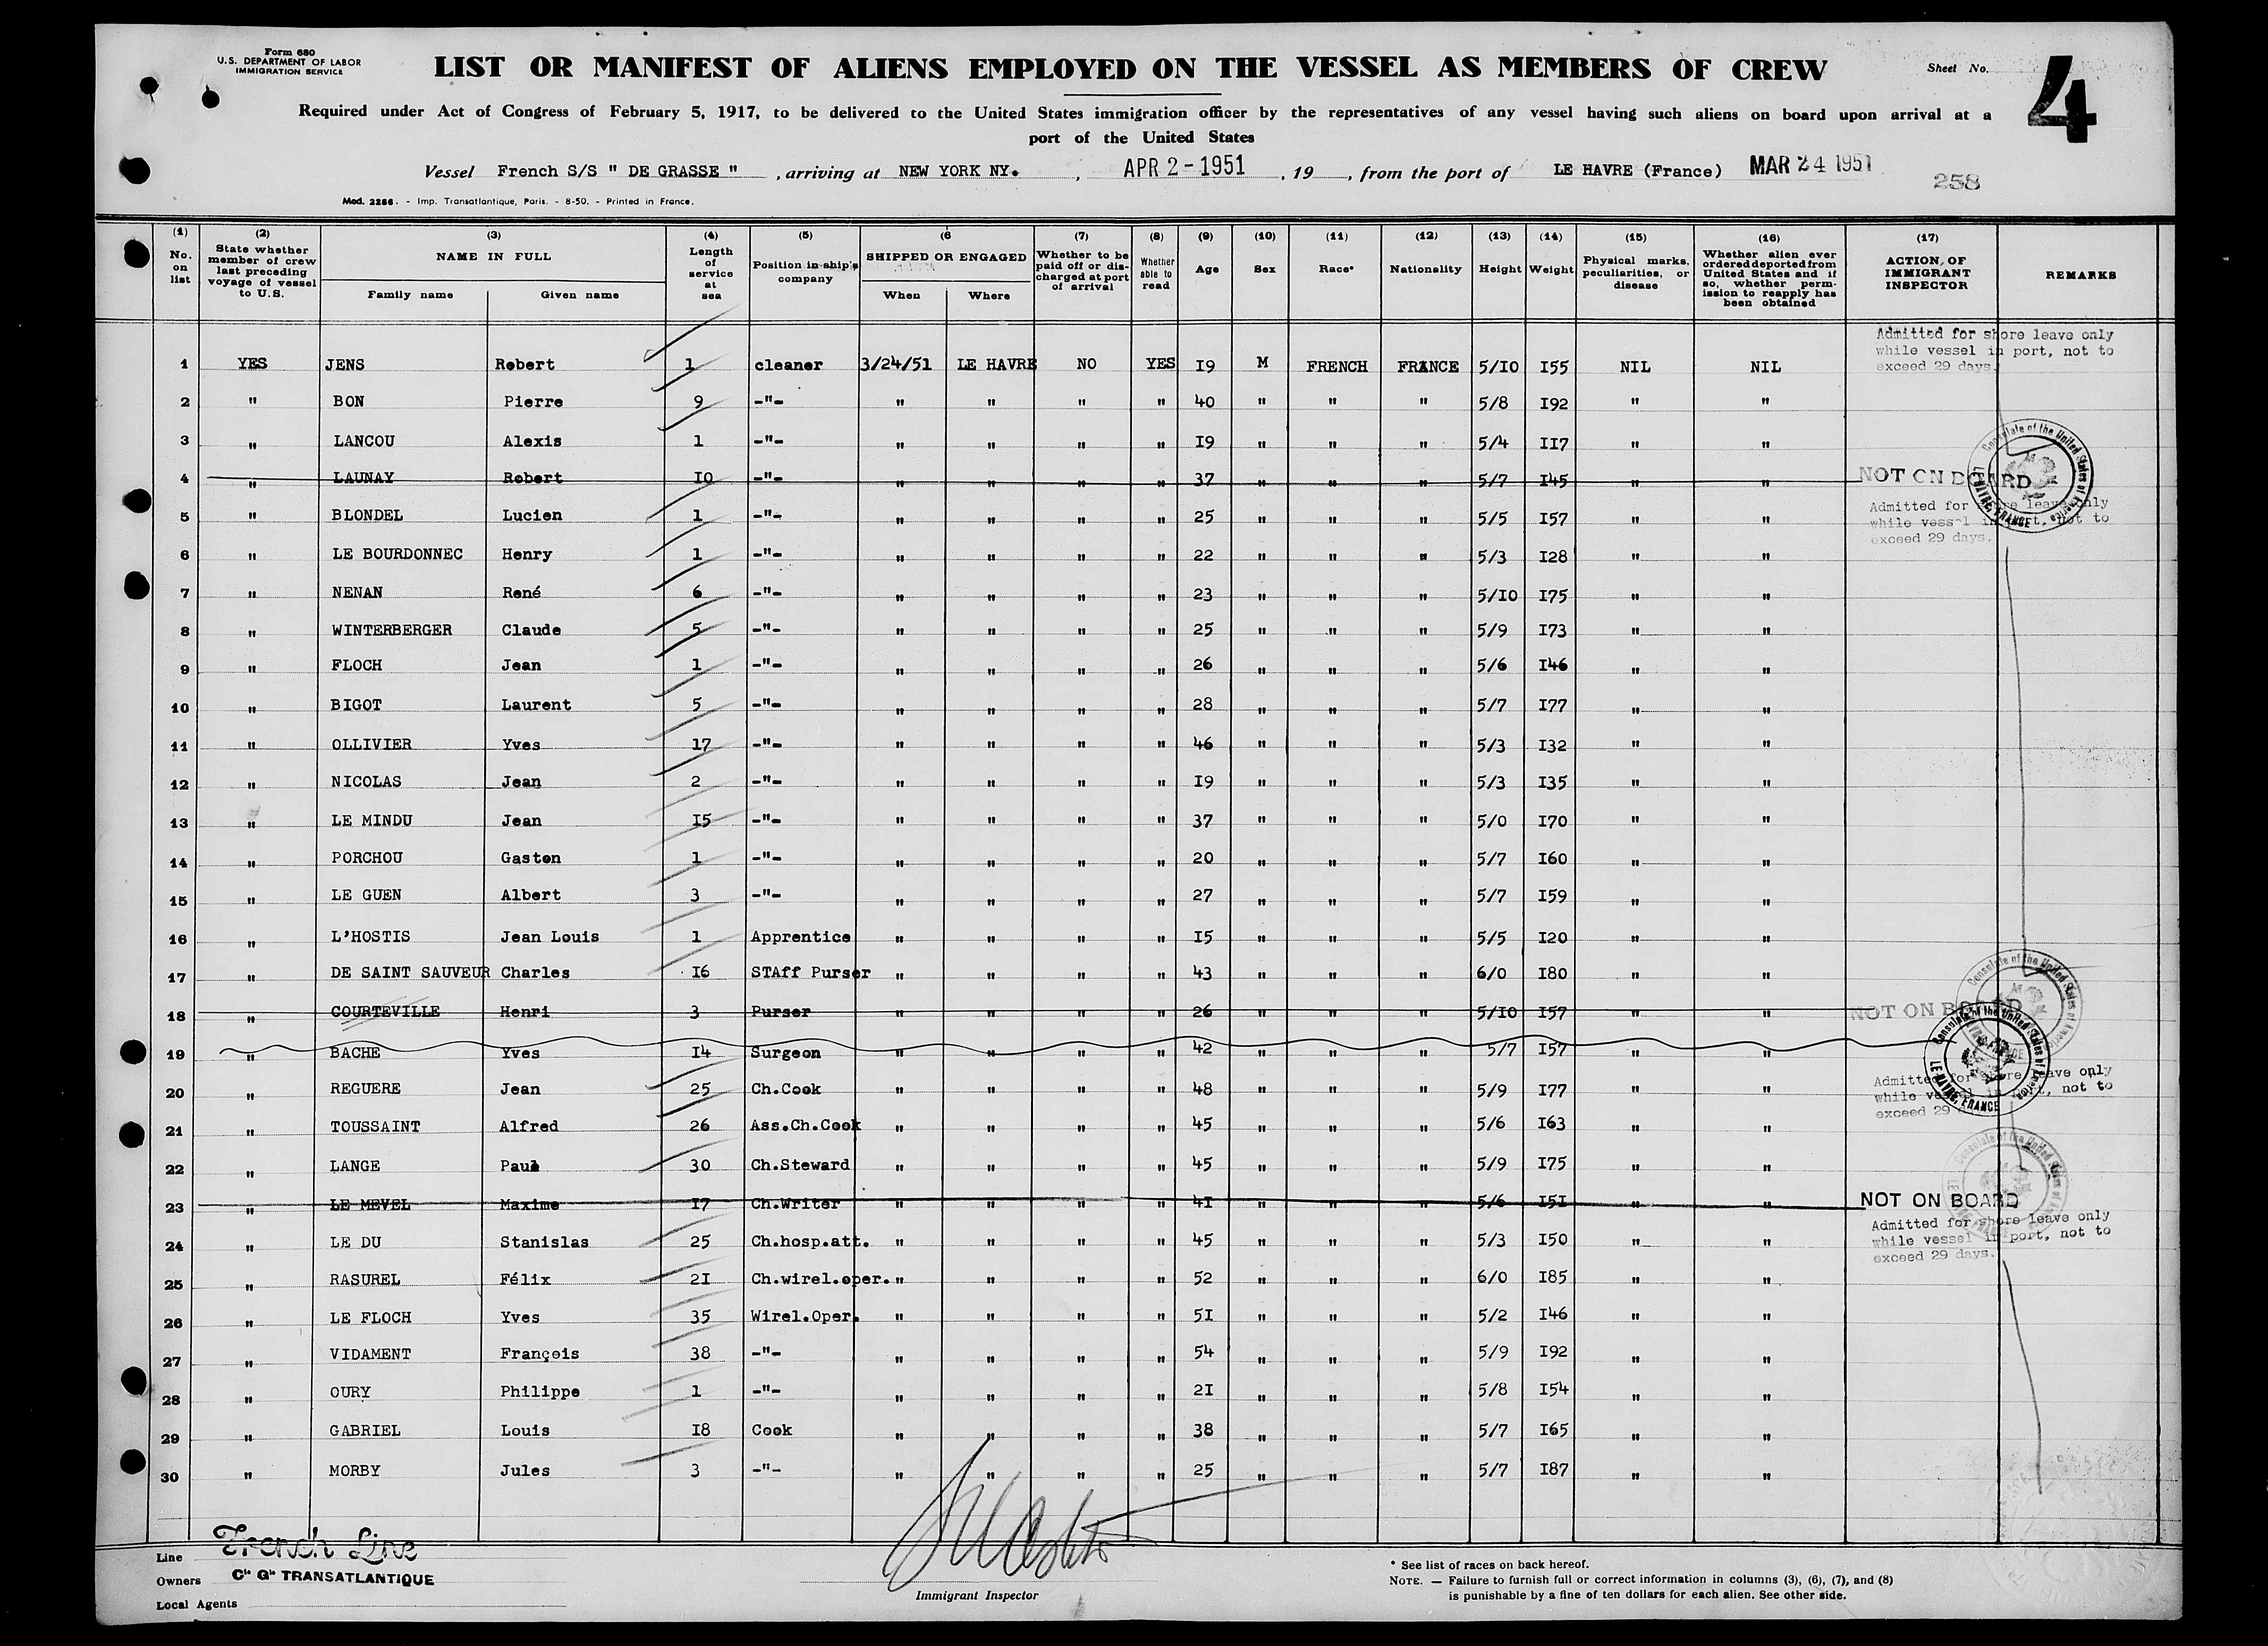 Form 680
U.S. DEPARTMENT OF LABOR
IMMIGRATION SERVICE
LIST OR MANIFEST OF ALIENS EMPLOYED ON THE VESSEL AS MEMBERS OF CREW
Sheet No. 4
Required under Act of Congress of February 5, 1917, to be delivered to the United States immigration officer by the representatives of any vessel having such aliens on board upon arrival at a
port of the United States
Vessel French S/S " DE GRASSE " , arriving at NEW YORK NY. , APR 2-1951 , 19 , from the port of LE HAVRE (France) MAR 24 1951
258
Mod. 2286. - Imp. Transatlantique, Paris. - 8-50. - Printed in France.
(1) No. on list (2) State whether member of crew last preceding voyage of vessel to U.S. (3) NAME IN FULL Family name Given name (4) Length of service at sea (5) Position in ship's company (6 SHIPPED OR ENGAGED When Where (7) Whether to be paid off or discharged at port of arrival (8) Whether able to read (9) Age (10) Sex (11) Race* (12) Nationality (13) Height (14) Weight (15) Physical marks, peculiarities, or disease (16) Whether alien ever ordered deported from United States and if so, whether permission to reapply has been obtained (17) ACTION OF IMMIGRANT INSPECTOR REMARKS
Admitted for shore leave only
while vessel in port, not to
exceed 29 days.
1 YES JENS Robert 1 cleaner 3/24/51 LE HAVRE NO YES I9 M FRENCH FRANCE 5/IO I55 NIL NIL
2 " BON Pierre 9 -"- " " " " 40 " " " 5/8 I92 " "
3 " LANCOU Alexis 1 -"- " " " " I9 " " " 5/4 II7 " "
4 " LAUNAY Robert IO -"- " " " " 37 " " " 5/7 I45 " " NOT ON BOARD
Consulate of the United States of America LE HAVRE, FRANCE
Admitted for shore leave only
while vessel in port, not to
exceed 29 days.
5 " BLONDEL Lucien 1 -"- " " " " 25 " " " 5/5 I57 " "
6 " LE BOURDONNEC Henry 1 -"- " " " " 22 " " " 5/3 I28 " "
7 " NENAN René 6 -"- " " " " 23 " " " 5/IO I75 " "
8 " WINTERBERGER Claude 5 -"- " " " " 25 " " " 5/9 I73 " "
9 " FLOCH Jean 1 -"- " " " " 26 " " " 5/6 I46 " "
10 " BIGOT Laurent 5 -"- " " " " 28 " " " 5/7 I77 " "
11 " OLLIVIER Yves 17 -"- " " " " 46 " " " 5/3 I32 " "
12 " NICOLAS Jean 2 -"- " " " " I9 " " " 5/3 I35 " "
13 " LE MINDU Jean I5 -"- " " " " 37 " " " 5/0 I70 " "
14 " PORCHOU Gaston 1 -"- " " " " 20 " " " 5/7 I60 " "
15 " LE GUEN Albert 3 -"- " " " " 27 " " " 5/7 I59 " "
16 " L'HOSTIS Jean Louis 1 Apprentice " " " " I5 " " " 5/5 I20 " "
17 " DE SAINT SAUVEUR Charles I6 STAff Purser " " " " 43 " " " 6/0 I80 " "
18 " COURTEVILLE Henri 3 Purser " " " " 26 " " " 5/IO I57 " " NOT ON BOARD
Consulate of the United States of America
19 " BACHE Yves I4 Surgeon " " " " 42 " " " 5/7 I57 " "
Consulate of the United States of America LE HAVRE, FRANCE
Admitted for shore leave only
while vessel in port, not to
exceed 29
20 " REGUERE Jean 25 Ch.Cook " " " " 48 " " " 5/9 I77 " "
21 " TOUSSAINT Alfred 26 Ass.Ch.Cook " " " " 45 " " " 5/6 I63 " "
22 " LANGE Paul 30 Ch.Steward " " " " 45 " " " 5/9 I75 " "
Consulate of the United States of America
23 " LE MEVEL Maxime I7 Ch.Writer " " " " 4I " " " 5/6 I5I " " NOT ON BOARD
Admitted for shore leave only
while vessel in port, not to
exceed 29 days.
24 " LE DU Stanislas 25 Ch.hosp.att. " " " " 45 " " " 5/3 I50 " "
25 " RASUREL Félix 2I Ch.wirel.oper. " " " " 52 " " " 6/0 I85 " "
26 " LE FLOCH Yves 35 Wirel.Oper. " " " " 5I " " " 5/2 I46 " "
27 " VIDAMENT François 38 -"- " " " " 54 " " " 5/9 I92 " "
28 " OURY Philippe 1 -"- " " " " 2I " " " 5/8 I54 " "
29 " GABRIEL Louis I8 Cook " " " " 38 " " " 5/7 I65 " "
30 " MORBY Jules 3 -"- " " " " 25 " " " 5/7 I87 " "
Line French Line
Owners Cie Gle TRANSATLANTIQUE
Local Agents
Immigrant Inspector
* See list of races on back hereof.
NOTE. — Failure to furnish full or correct information in columns (3), (6), (7), and (8)
is punishable by a fine of ten dollars for each alien. See other side.